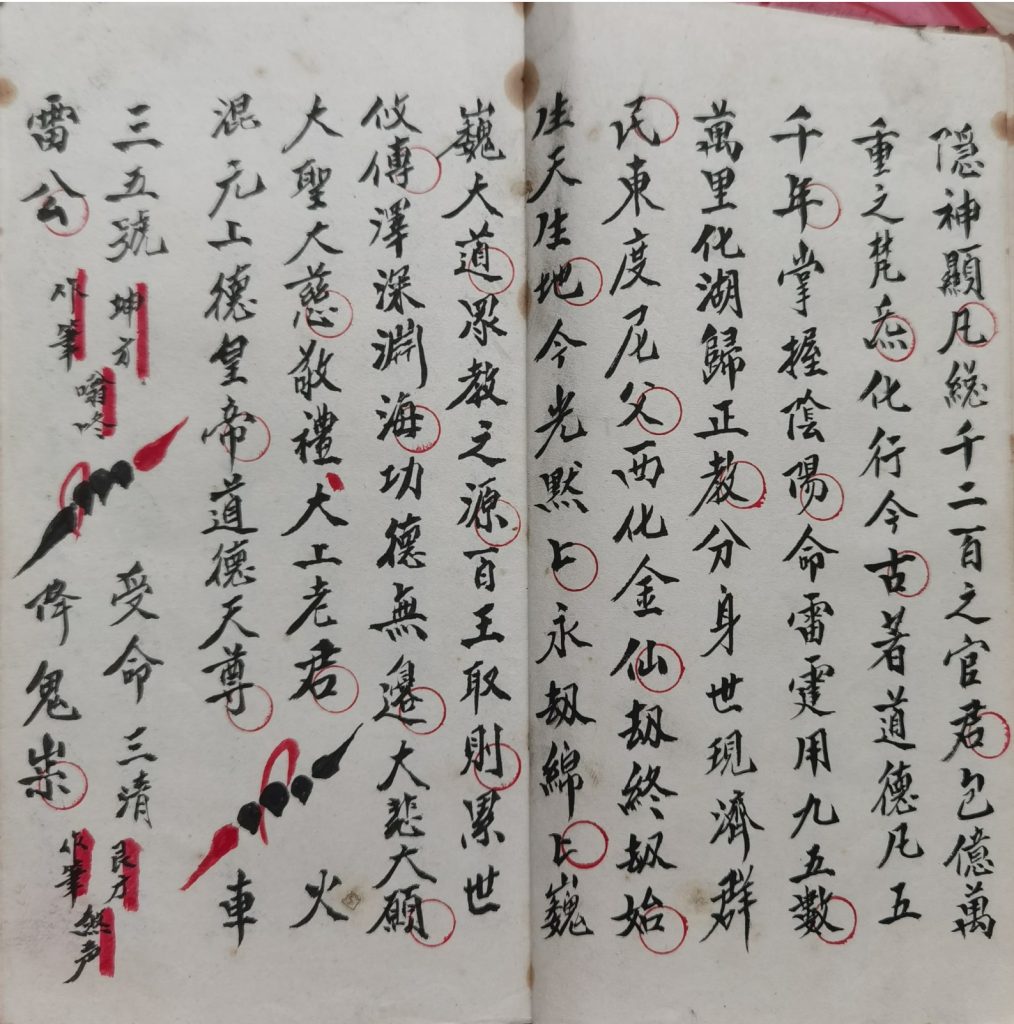 隱神顯凡總千二百之官君包億萬
重之梵炁化行今古著道德凡五
千年掌握陰陽命雷霆用九五數
萬里化湖歸正教分身世現濟群
民東度尼父西化金仙劫終劫始
生天生地今光默〻永劫綿〻巍
巍大道眾教之源百王取則累世
攸傳澤深淵海功德無邊大悲大願
大聖大慈敬禮大上老君 火
混元上德皇帝道德天尊 車
三五號 坤方 受命三清 艮方
雷公 作筆 嗡咚 降鬼祟 作筆 怒声